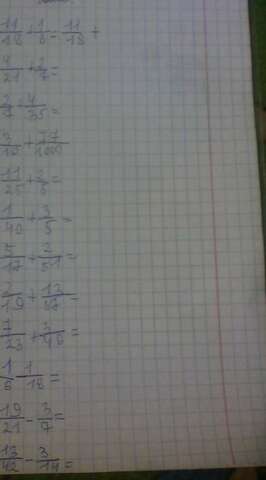 11/18 + 1/6 = 11/18 +
4/21 + 2/7 =
2/7 + 4/35 =
3/10 + 77/100
11/25 + 2/5 =
1/40 + 3/5 =
5/17 + 2/51 =
2/19 + 13/57 =
7/23 + 3/46 =
1/6 - 1/18 =
19/21 - 3/7 =
13/42 - 3/14 =